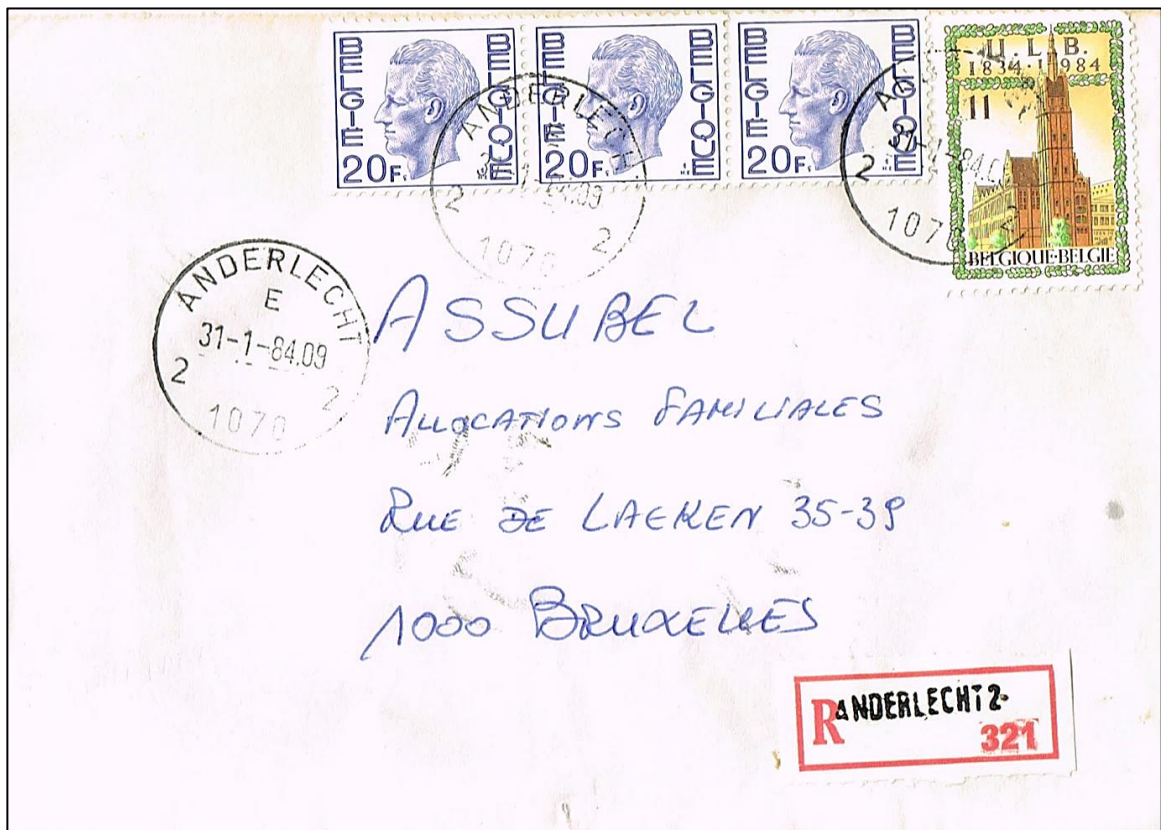 BELGIE BELGIQUE
20F.
BELGIE BELGIQUE
20F.
BELGIE BELGIQUE
20F.
U. L. B.
1834-1984
11
BELGIQUE-BELGIE
ANDERLECHT
2 2
1070
2
-84.0
1070
ANDERLECHT
E
31-1-84.09
2 2
1070
ASSUBEL
ALLOCATIONS FAMILIALES
RUE DE LAEKEN 35-39
1000 BRUXELLES
R ANDERLECHT 2-
321